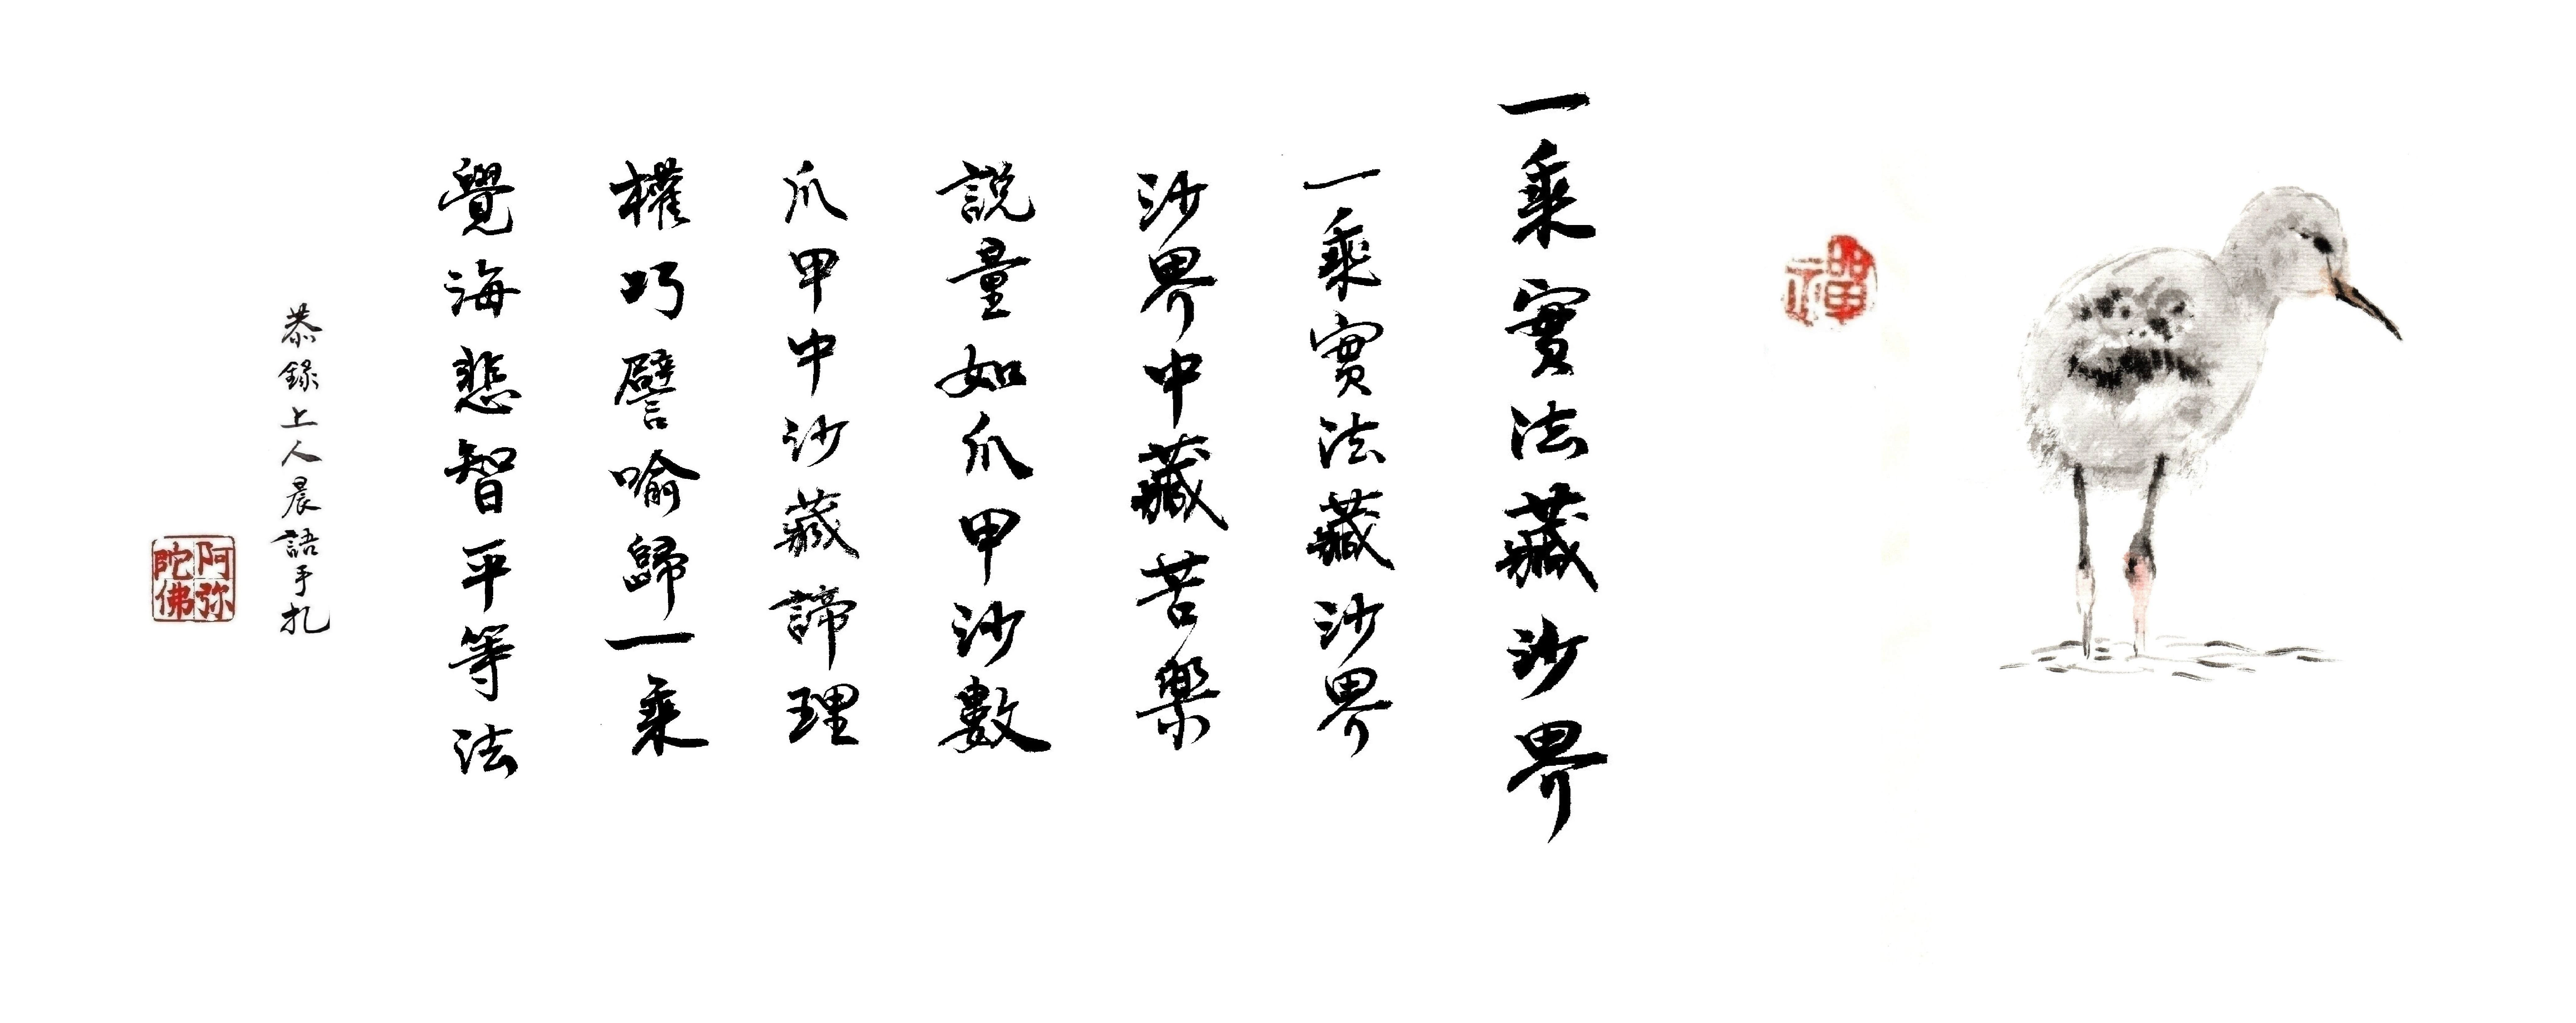 禪
一乘實法藏沙界
一乘實法藏沙界
沙界中藏苦樂
說量如爪甲沙數
爪甲中沙藏諦理
權巧譬喻歸一乘
覺海悲智平等法
恭錄上人晨語手札
阿弥陀佛